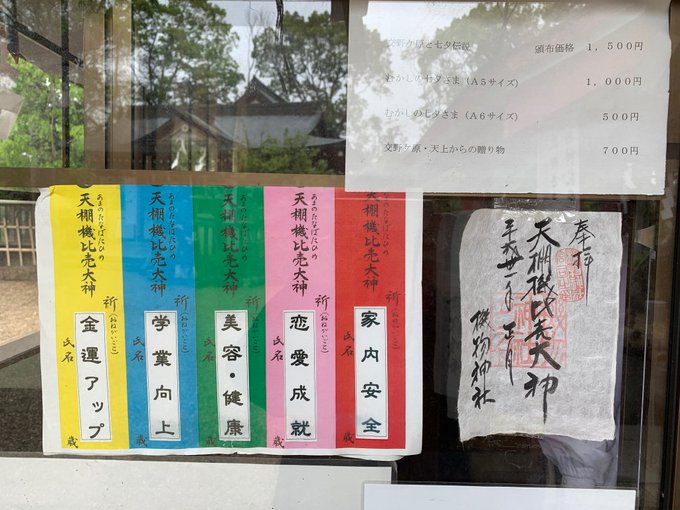 交野ケ原と七夕伝説 頒布価格 1,500円
むかしの七夕さま(A5サイズ) 1,000円
むかしの七夕さま(A6サイズ) 500円
交野ケ原・天上からの贈り物 700円
家内安全
天棚機比売大神
あまのたなばたひめの
祈
(おねがいごと)
氏名
歳
恋愛成就
天棚機比売大神
あまのたなばたひめの
祈
(おねがいごと)
氏名
歳
美容・健康
天棚機比売大神
あまのたなばたひめの
祈
(おねがいごと)
氏名
歳
学業向上
天棚機比売大神
あまのたなばたひめの
祈
(おねがいごと)
氏名
歳
金運アップ
天棚機比売大神
あまのたなばたひめの
祈
(おねがいごと)
氏名
歳
奉拝
天棚機比売大神
機物神社